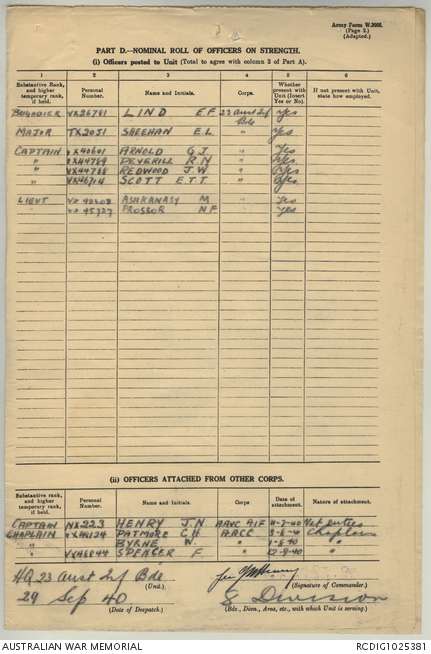 Army Form W.3008.
(Page 2.)
(Adapted.)
PART D.—NOMINAL ROLL OF OFFICERS ON STRENGTH.
(i) Officers posted to Unit (Total to agree with column 3 of Part A).
1 2 3 4 5 6
Substantive Rank, and higher temporary rank, if held. Personal Number. Name and Initials. Corps. Whether present with Unit (Insert Yes or No). If not present with Unit, state how employed.
BRIGADIER VX26781 LIND E F 23 Aust Inf Bde Yes
MAJOR TX2031 SHEEHAN E.L. " Yes
CAPTAIN VX40601 ARNOLD G J. " Yes
" VX44789 DEVERILL R N " Yes
" VX44788 REDWOOD J.W. " Yes
" VX46714 SCOTT E.T.T " Yes
LIEUT VX ASHKANASY M " Yes
" VX 45727 PROSSOR N F " Yes
(ii) OFFICERS ATTACHED FROM OTHER CORPS.
Substantive rank, and higher temporary rank, if held. Personal Number. Name and Initials. Corps Date of attachment. Nature of attachment.
CAPTAIN NX223 HENRY J.N AAVC AIF -40 Vet duties
CHAPLAIN PATMORE C H AACC -40 Chaplain
" BYRNE W. " -8-40 "
" VX46844 SPENCER F. " 12-9-40 "
HQ 23 Aust Inf Bde
(Unit.) (Signature of Commander.)
29 Sep 40 8 Division
(Date of Despatch.) (Bde., Divn., Area, etc., with which Unit is serving.)
AUSTRALIAN WAR MEMORIAL RCDIG1025381